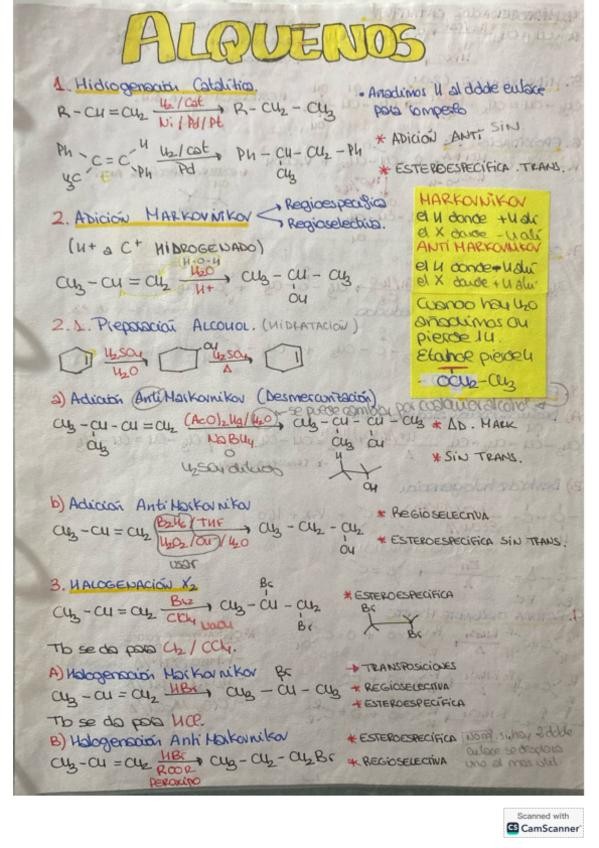 ALQUENOS
1. Hidrogenación Catalítica.
R-CH=CH2 H2/Cat Ni/Pd/Pt → R-CH2-CH3
• Añadimos H al doble enlace
para romperlo
* ADICIÓN ANTI SIN
* ESTEROESPECÍFICA. TRANS.
Ph H3C C=C H Ph H2/cat Pd → Ph-CH-CH2-Ph
CH3
2. ADICIÓN MARKOVNIKOV
Regioespecífica
Regioselectiva.
(H+ a C+ HIDROGENADO)
(H-O-H)
CH3-CH=CH2 H2O H+ → CH3-CH-CH3
OH
MARKOVNIKOV
el H donde +H ahí
el X donde -H ahí
ANTI MARKOVNIKOV
el H donde -H ahí
el X donde +H ahí
Cuando hay H2O
añadimos OH
pierde 1H.
Etanol pierde H
-OCH2-CH3
2.1. Preparación Alcohol. (HIDRATACIÓN)
H2SO4 H2O → OH H2SO4 Δ →
a) Adición AntiMarkovnikov (Desmercurización)
CH3-CH-CH=CH2 (AcO)2Hg/H2O NaBH4 → CH3-CH-CH-CH3
CH3 CH3 OH
se puede cambiar por cualquier alcohol
* AD. MARK
* SIN TRANS.
O
H2SO4 diluido
H
OH
b) Adición AntiMarkovnikov
CH3-CH=CH2 B2H6/THF H2O2/OH-/H2O → CH3-CH2-CH2
OH
usar
* REGIOSELECTIVA
* ESTEROESPECÍFICA SIN TRANS.
3. HALOGENACIÓN X2
CH3-CH=CH2 Br2 CCl4 → CH3-CH-CH2
Br
Br
* ESTEROESPECÍFICA
Br
Br
Tb se da para Cl2/CCl4.
A) Halogenación Markovnikov
CH3-CH=CH2 HBr → CH3-CH-CH3
Br
→ TRANSPOSICIONES
* REGIOSELECTIVA
* ESTEROESPECÍFICA
Tb se da para HCl.
B) Halogenación AntiMarkovnikov
CH3-CH=CH2 HBr ROOR PEROXIDO → CH3-CH2-CH2Br
* ESTEROESPECÍFICA
* REGIOSELECTIVA
si hay 2 doble
enlace se
uno al más
Scanned with
CS CamScanner